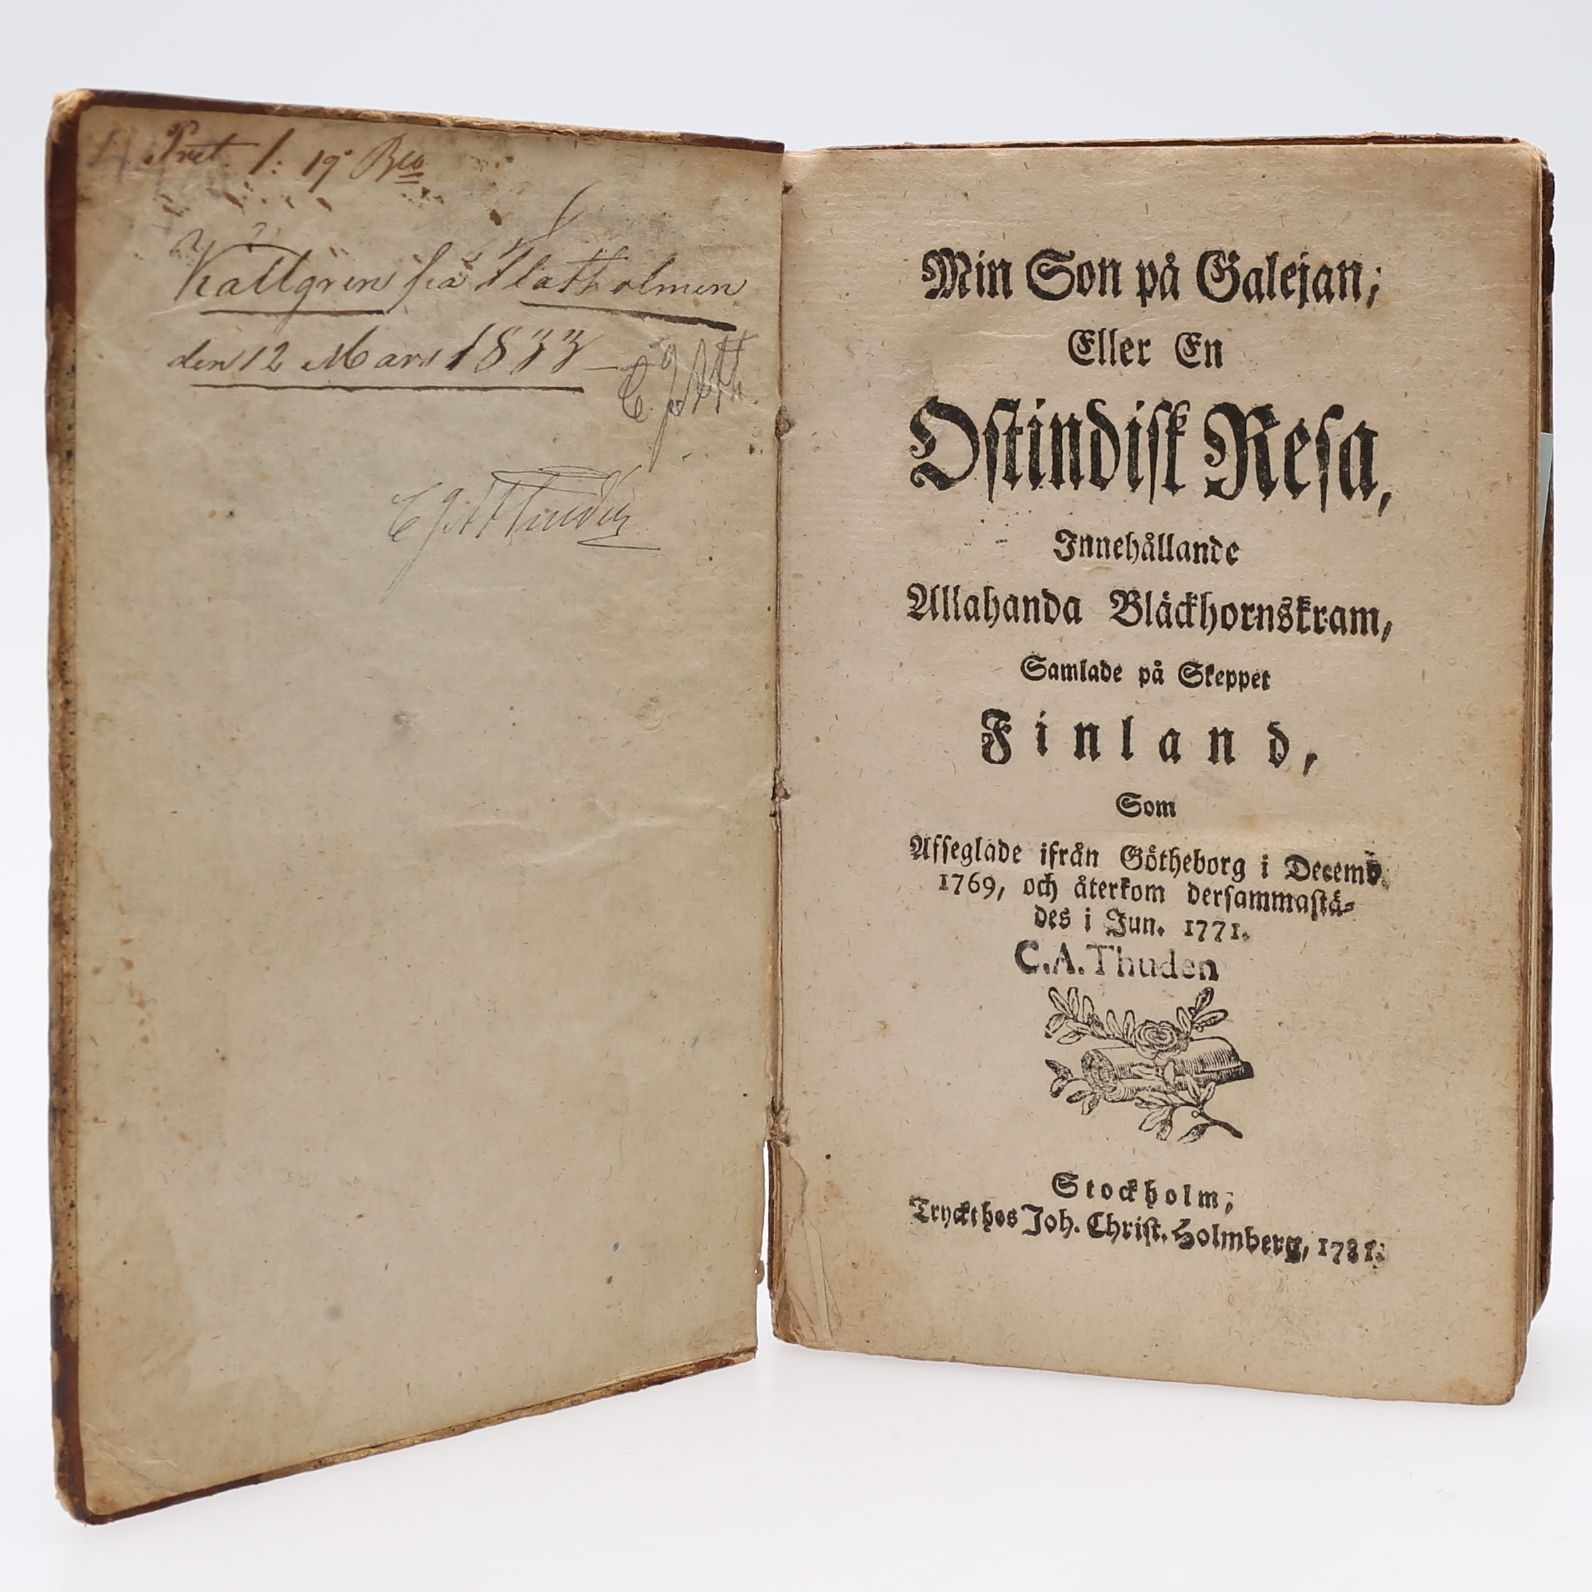 1: 19
Källgren frå Flatholmen
den 12 Mars 1833
Min Son på Galejan;
Eller En
Ostindisk Resa,
Innehållande
Allahanda Bläckhornskram,
Samlade på Skeppet
Finland,
Som
Afseglade ifrån Götheborg i Decemb.
1769, och återkom dersammastä-
des i Jun. 1771.
C.A.Thuden
Stockholm,
Tryckt hos Joh. Christ. Holmberg, 1781.